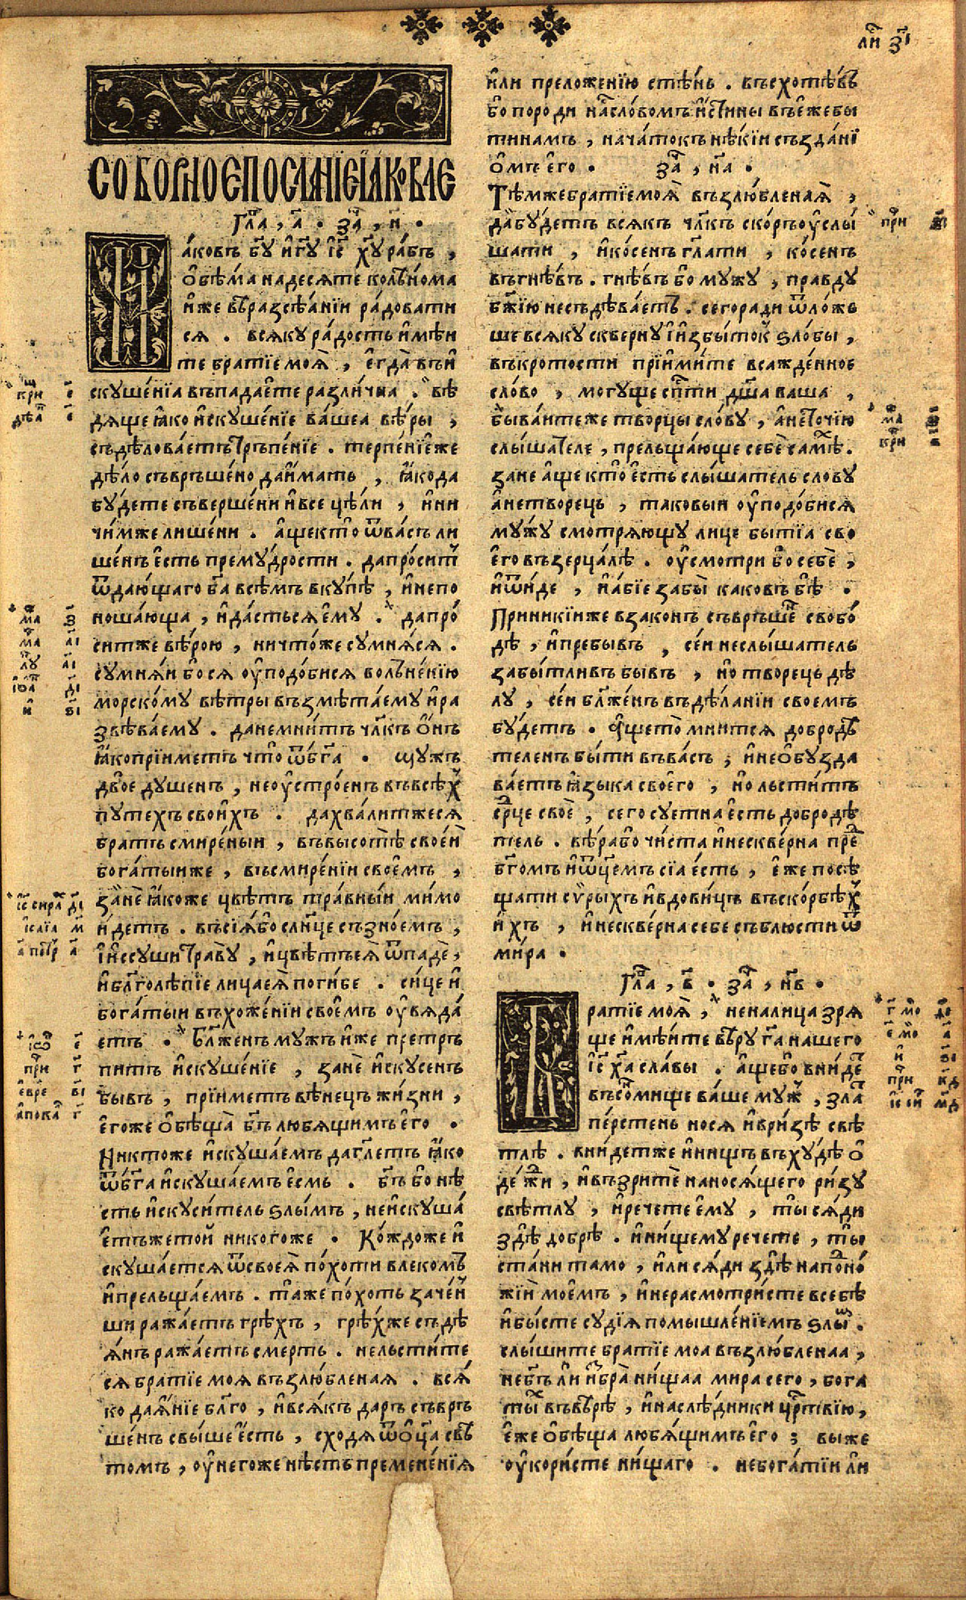 СОБОРНОЕ ПОСЛАНІЕ ІꙖКОВЛЕ
Гла҃, а҃ . За҃, н҃ .
Иаковъ бг҃у и гд҃у іс҃ ху҃ рабъ ,
обѣма надесяте колѣнома
иже въ разсѣаніи радовати
ся . всяку радость имѣи
те братіе моя , егда въ и
скушенїа въпадаете различна . вѣ
дяще ꙗко искушенїе вашеа вѣры ,
съдѣловаетъ трьпенїе . терпенїе же
дѣло съвръшено да имать , ꙗко да
будете съвершени и все цѣли , и ни
чимже лишени . аще кто ѿ васъ ли
шенъ есть премудрости . да проситъ
ѿ дающаго бг҃а всѣмъ вкупѣ , и не по
ношающа , и дасться ему . да про
ситже вѣрою , ничтоже сумняся .
сумняи бо ся уподобися волненїю
морскому вѣтры възмѣтаему и ра
звѣваему . да не мнитъ чл҃къ онъ
ꙗко прїиметъ что ѿ бг҃а . мужъ
двоедушенъ , неустроенъ въ всѣх
путехъ своихъ . да хвалитжеся
братъ смиреныи , въ высотѣ своеи
богатыи же , въ смиренїи своемъ ,
зане ꙗкоже цвѣтъ травныи мимо
идетъ . въсїя бо слнце съ зноемъ ,
и иссуши траву , и цвѣтъ ея ѿпаде ,
и благолѣпїе лица ея погибе . сице и
богатыи въ хоженїи своемъ увяда
етъ . Бл҃женъ мужъ иже претръ
питъ искушенїе , зане искусенъ
бывъ , прїиметъ вѣнецъ жизни ,
егоже обѣща бг҃ъ любящимъ его .
Никтоже искушаемъ да гл҃етъ ꙗко
ѿ бг҃а искушаемъ есмь . бг҃ъ бо нѣ
сть искуситель ѕлымъ , не искуша
етъ же той никогоже . Кождо же и
скушается ѿ своея похоти влекомъ
и прельщаемъ . таже похоть заченъ
ши ражаетъ грѣхъ , грѣхже съдѣ
янъ ражаетъ смерть . не льстите
ся братїе моя възлюбленая . вся
ко даянїе бл҃го , и всякъ даръ съвръ
шенъ свыше есть , сходя ѿ оца свѣ
томъ , у негоже нѣсть премененїя
ли҃ зı҃
или преложенїю стѣнь . въсхотѣвъ
бо породи нас словомъ истины въ еже бы
ти намъ , начатокъ нѣкїи създанї
омъ его . за҃ , на҃ .
Тѣмже братїе моя възлюбленая ,
да будетъ всякъ чл҃къ скоръ услы
шати , и косенъ гл҃ати , косенъ
въ гнѣвъ . гнѣвъ бо мужу , правду
бж҃їю не съдѣваетъ . сего ради ѿлож
ше всяку скверну и избыток ѕлобы ,
въ кротости прїимите всажденное
слово , могуще сп҃сти дш҃а ваша ,
бываите же творцы слову , а не точїю
слышателе , прельщающе себе самѣх .
зане аще кто есть слышатель слову
а не творецъ , таковыи уподобися
мужу смотряющу лице бытїа сво
его въ зерцалѣ . усмотри бо себе ,
и ѿиде , и абїе забы каковъ бѣ .
Приникїиже в законъ съвръше свобо
дѣ , и пребывъ , сеи не слышатель
забытливъ бывъ , но творецъ дѣ
лу , сеи бл҃женъ въ дѣланїи своемъ
будетъ . Аще то мнится добродѣ
теленъ быти въ васъ ; и не обузда
ваетъ ꙗзыка своего , но льститъ
срце свое , сего суетна есть добродѣ
тель . вѣра бо чиста и нескверна пре
бг҃омъ и ѿц҃емъ сїа есть , еже посѣ
щати сирыхъ и вдовицъ въ скорбѣх
ихъ , и нескверна себе съблюсти ѿ
мира .
Гла҃ , в҃ . За҃ , нв҃ .
Братїе моя , не на лица зря
ще имѣите вѣру га҃ нашего
іс҃ ха҃ славы . аще бо внидет
въ сонмище ваше муж , зла
перстень нося и в ризѣ свѣ
тлѣ . внидетже и нищъ въ худѣ о
дежи , и възрите на носящего ризу
свѣтлу , и речете ему , ты сяди
здѣ добрѣ . и нищему речете , ты
стани тамо , или сяди здѣ на подно
жїи моемъ , и не расмотристе в себѣ
и бысте судїя помышленїемъ ѕлым .
слышите братїе моа възлюбленаа ,
не бг҃ъ ли избра нищаа мира сего , бога
ты въ вѣрѣ , и наслѣдники цр҃твїю ,
еже обѣща любящимъ его ; вы же
укористе нищаго . не богатїи ли